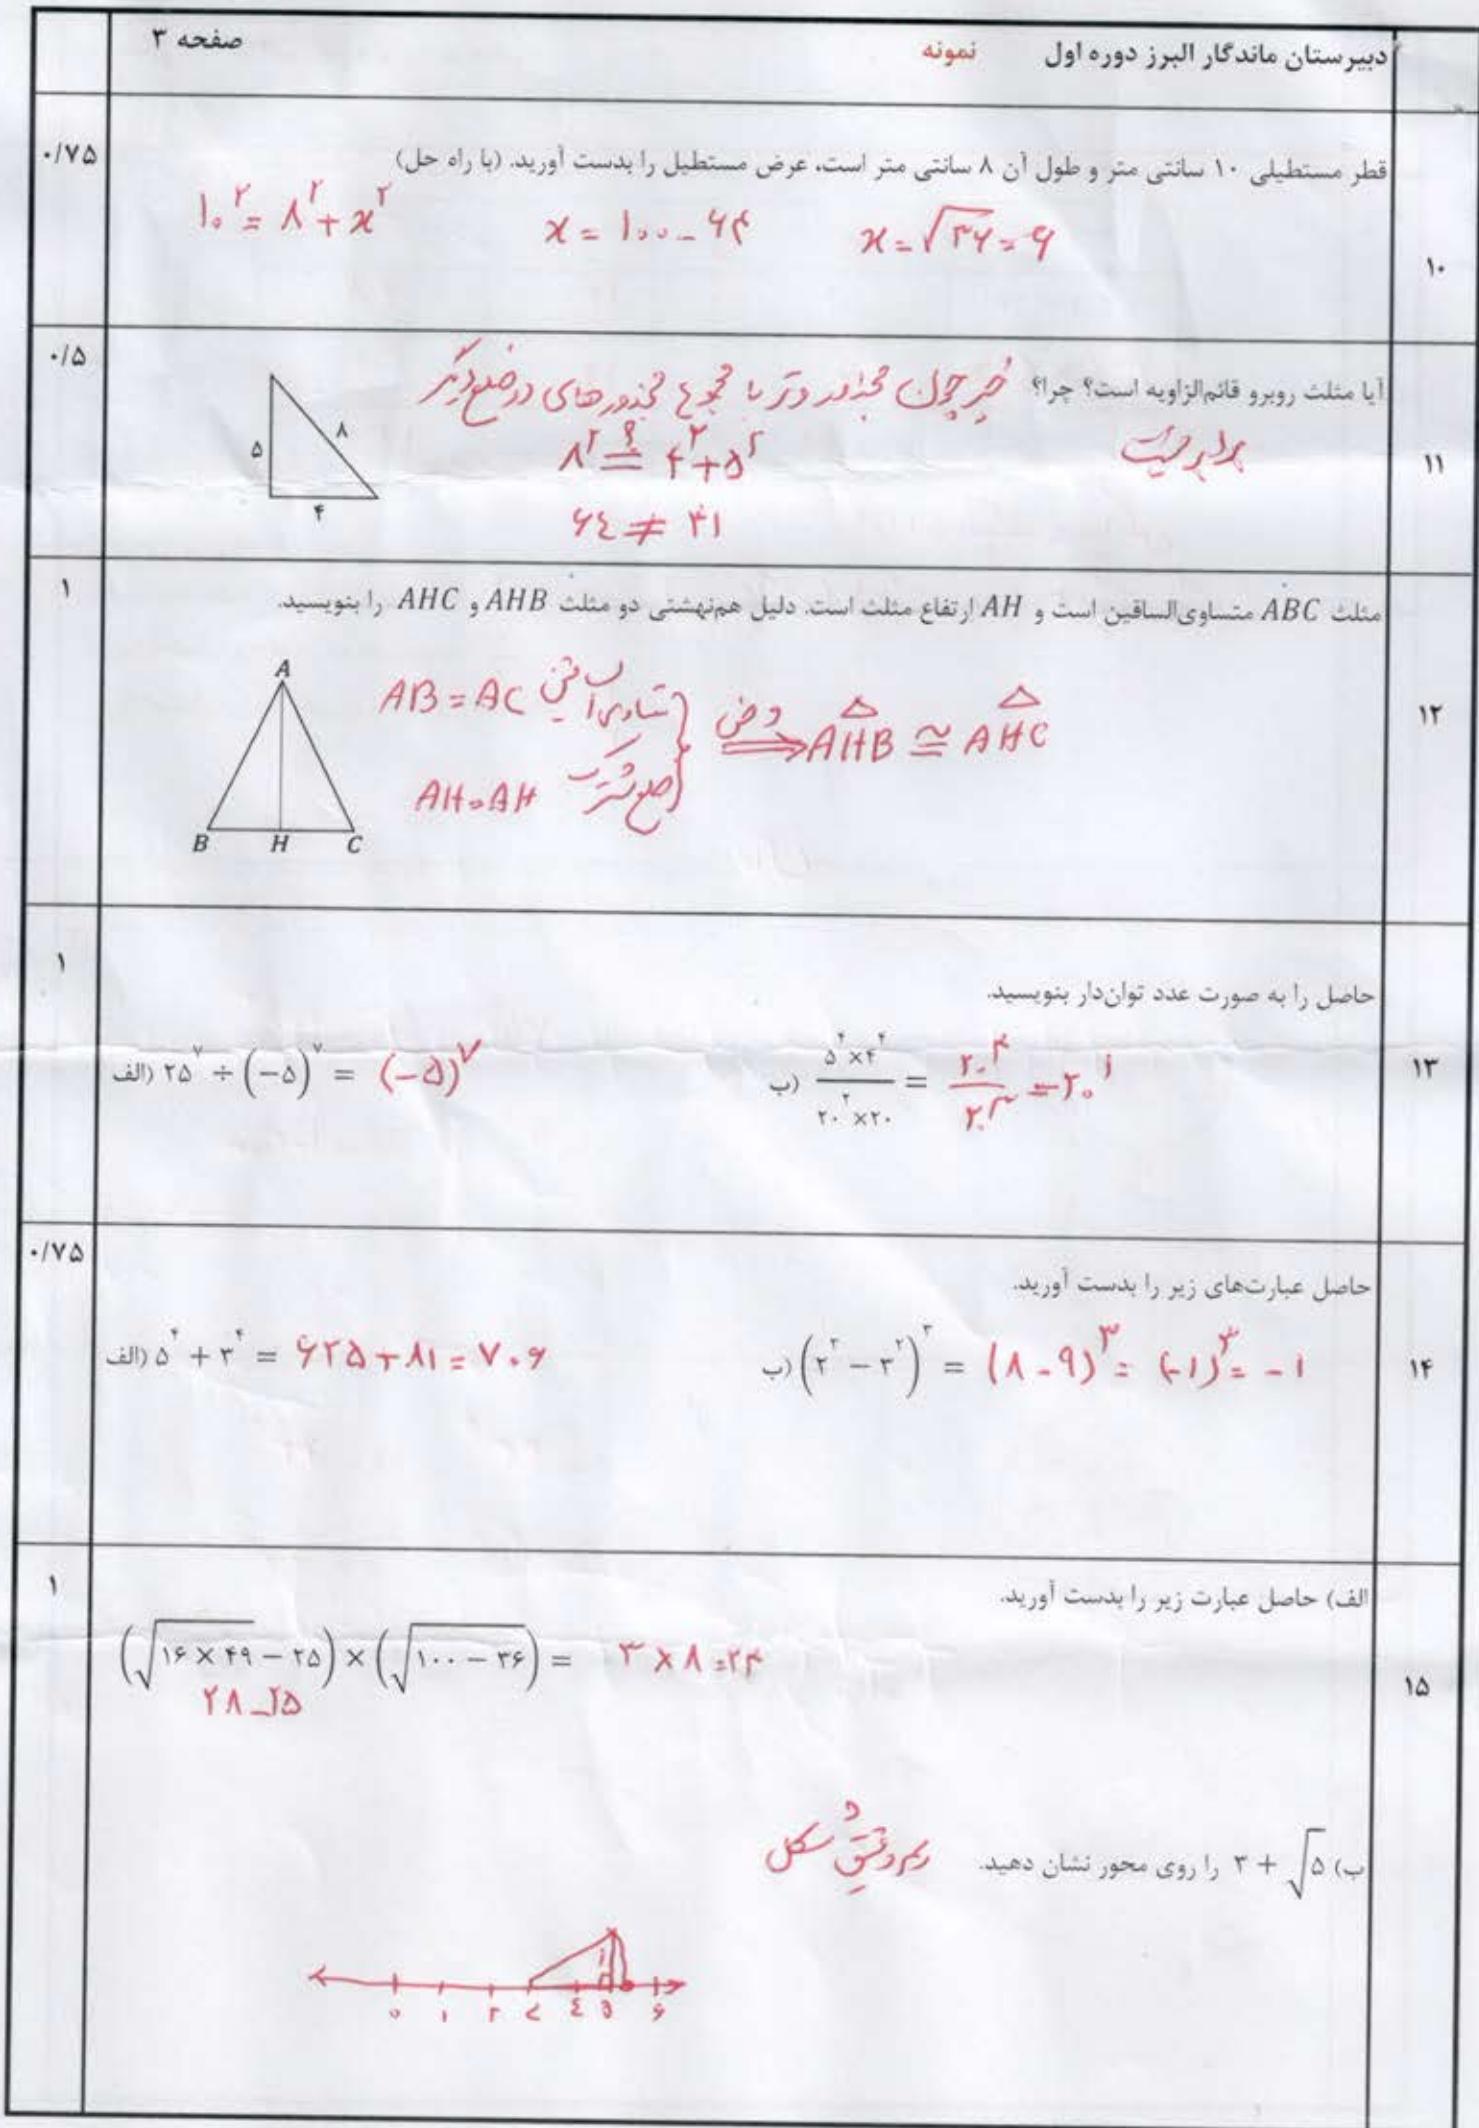 دبیرستان ماندگار البرز دوره اول نمونه صفحه ۳
۱۰
قطر مستطیلی ۱۰ سانتی متر و طول آن ۸ سانتی متر است، عرض مستطیل را بدست آورید. (با راه حل)
۰/۷۵
۱۰^۲ = ۸^۲ + x^۲ x = ۱۰۰ - ۶۴ x = √۳۶ = ۶
۱۱
آیا مثلث روبرو قائم‌الزاویه است؟ چرا؟ خیر چون مجذور وتر با مجموع مجذورهای دو ضلع دیگر
برابر نیست
۰/۵
۵ ۸ ۴
۸^۲ ≟ ۴^۲ + ۵^۲
۶۴ ≠ ۴۱
۱۲
مثلث ABC متساوی‌الساقین است و AH ارتفاع مثلث است. دلیل هم‌نهشتی دو مثلث AHB و AHC را بنویسید.
۱
A
B H C
AB = AC متساوی الساقین
AH = AH ضلع مشترک
⇒ و ض AHB ≅ AHC
۱۳
حاصل را به صورت عدد توان‌دار بنویسید.
۱
الف) ۲۵^۷ ÷ (-۵)^۷ = (-۵)^۷
ب) (۵^۴ × ۴^۴) / (۲۰^۲ × ۲۰) = ۲۰^۴ / ۲۰^۳ = ۲۰^۱
۱۴
حاصل عبارت‌های زیر را بدست آورید.
۰/۷۵
الف) ۵^۴ + ۳^۴ = ۶۲۵ + ۸۱ = ۷۰۶
ب) (۲^۳ - ۳^۲)^۳ = (۸ - ۹)^۳ = (-۱)^۳ = -۱
۱۵
الف) حاصل عبارت زیر را بدست آورید.
۱
(√(۱۶ × ۴۹) - ۲۵) × (√(۱۰۰ - ۳۶)) = ۳ × ۸ = ۲۴
۲۸ - ۲۵
ب) √۵ + ۳ را روی محور نشان دهید. رسم دقیق شکل
۱
۰ ۱ ۲ ۳ ۴ ۵ ۶